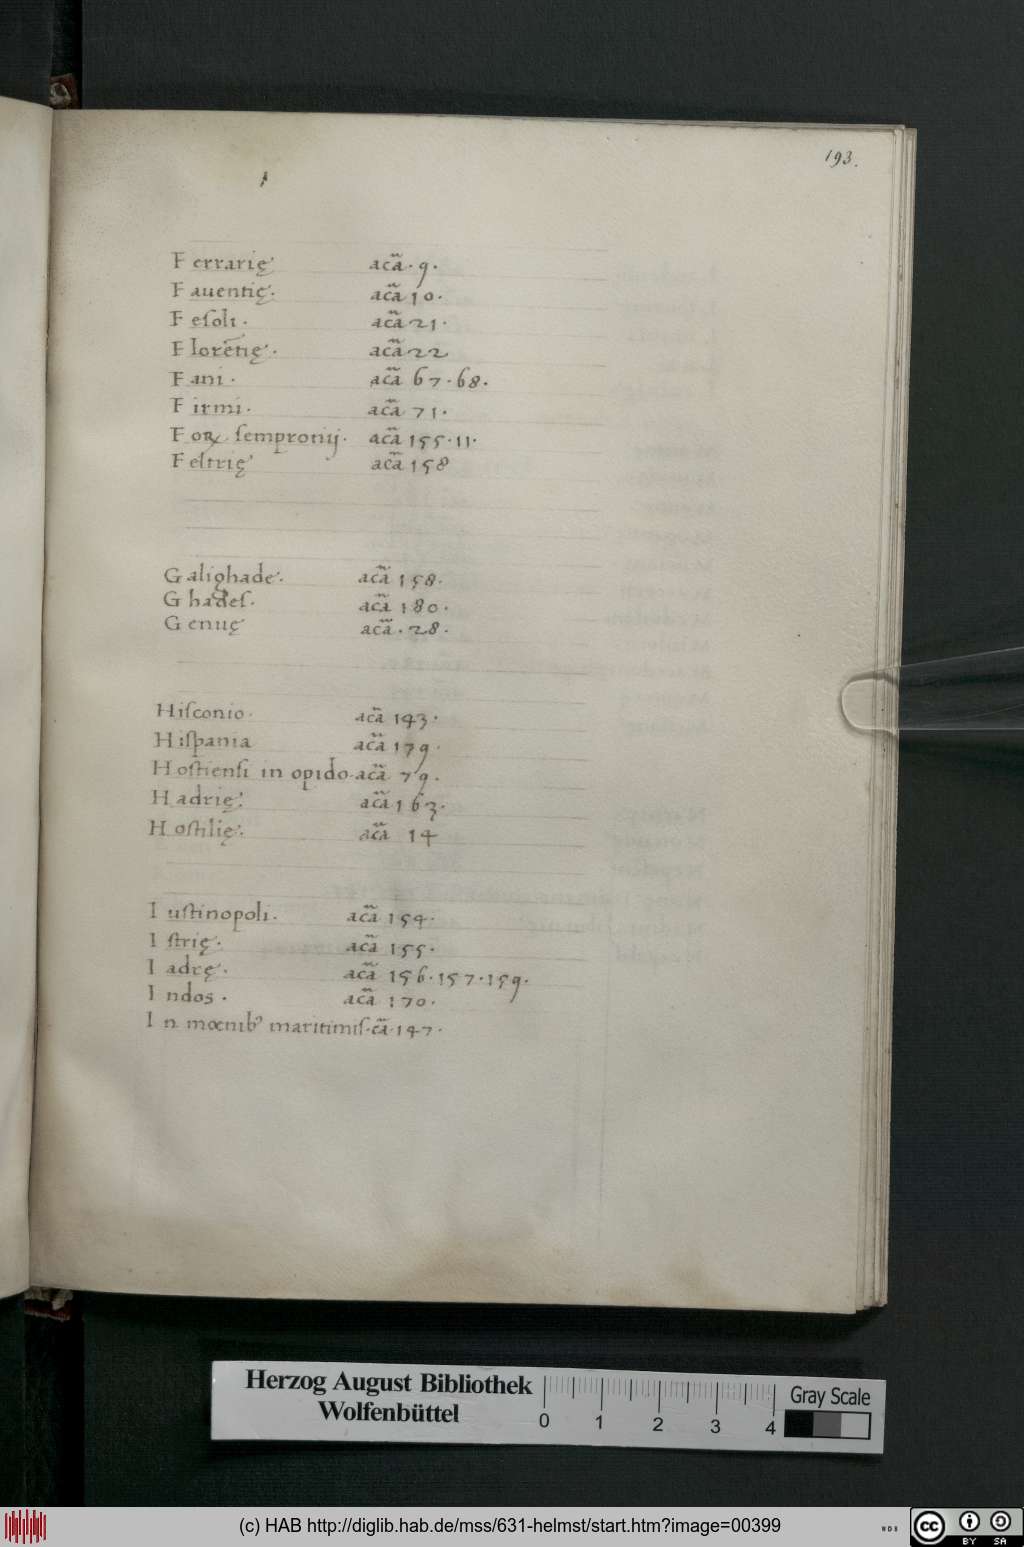 193.
Ferrarię· acã· 9·
Fauentię· acã 10·
Fesoli· acã 21·
Florẽtię· acã 22
Fani· acã 67·68·
Firmi· acã 71·
Foꝝ sempronij· acã 155·11·
Feltrię· acã 158
Galighade· acã 158·
Ghades· acã 180·
Genuę acã· 28·
Hisconio· acã 143·
Hispania acã 179·
Hostiensi in opido· acã 79·
Hadrię· acã 163·
Hostilię· acã 14
Iustinopoli· acã 154·
Istrię· acã 155·
Iadrę· acã 156·157·159·
Indos· acã 170·
In mœnibꝰ maritimis· cã· 147·
Herzog August Bibliothek
Wolfenbüttel
0 1 2 3 4
Gray Scale
(c) HAB http://diglib.hab.de/mss/631-helmst/start.htm?image=00399
WDB
cc BY SA